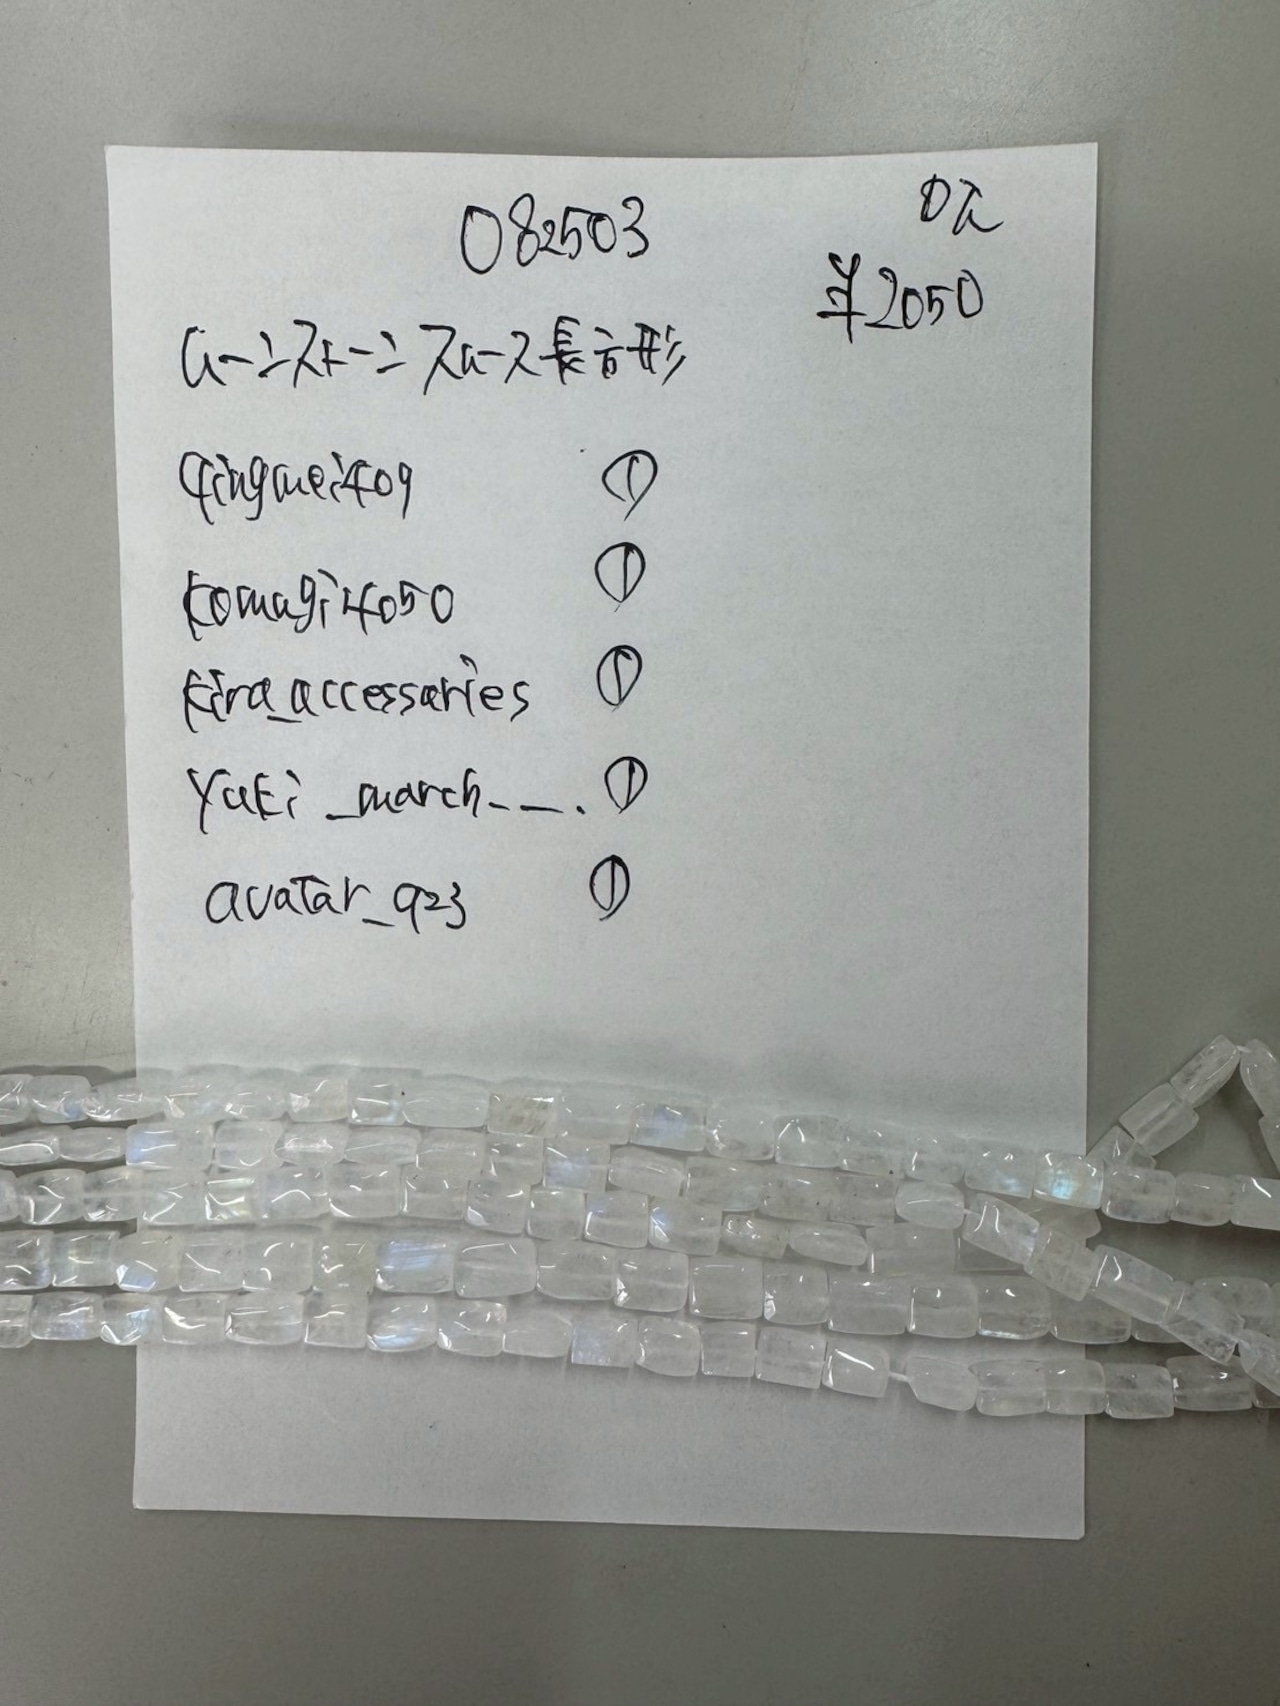 082503
OK
¥2050
ムーンストーン スムース長方形
qingmei409 ①
komagi4050 ①
kira_accessaries ①
Yuki_march__. ①
avatar_923 ①